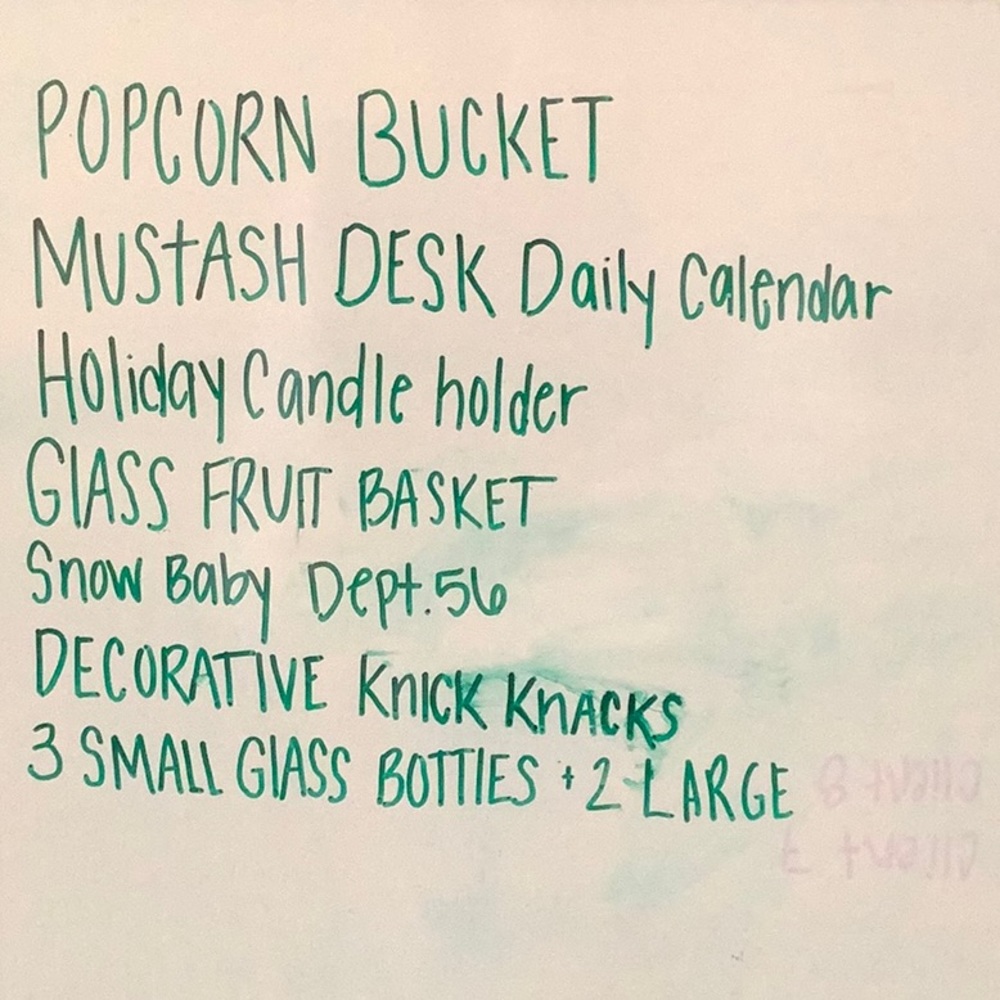 POPCORN BUCKET
MUStASH DESK Daily Calendar
Holiday Candle holder
GlASS FRUIT BASKET
Snow Baby Dept. 56
DECORATIVE KnICK KnACKS
3 SMALL GlASS BOTTlES + 2 LARGE
client 8
client 7